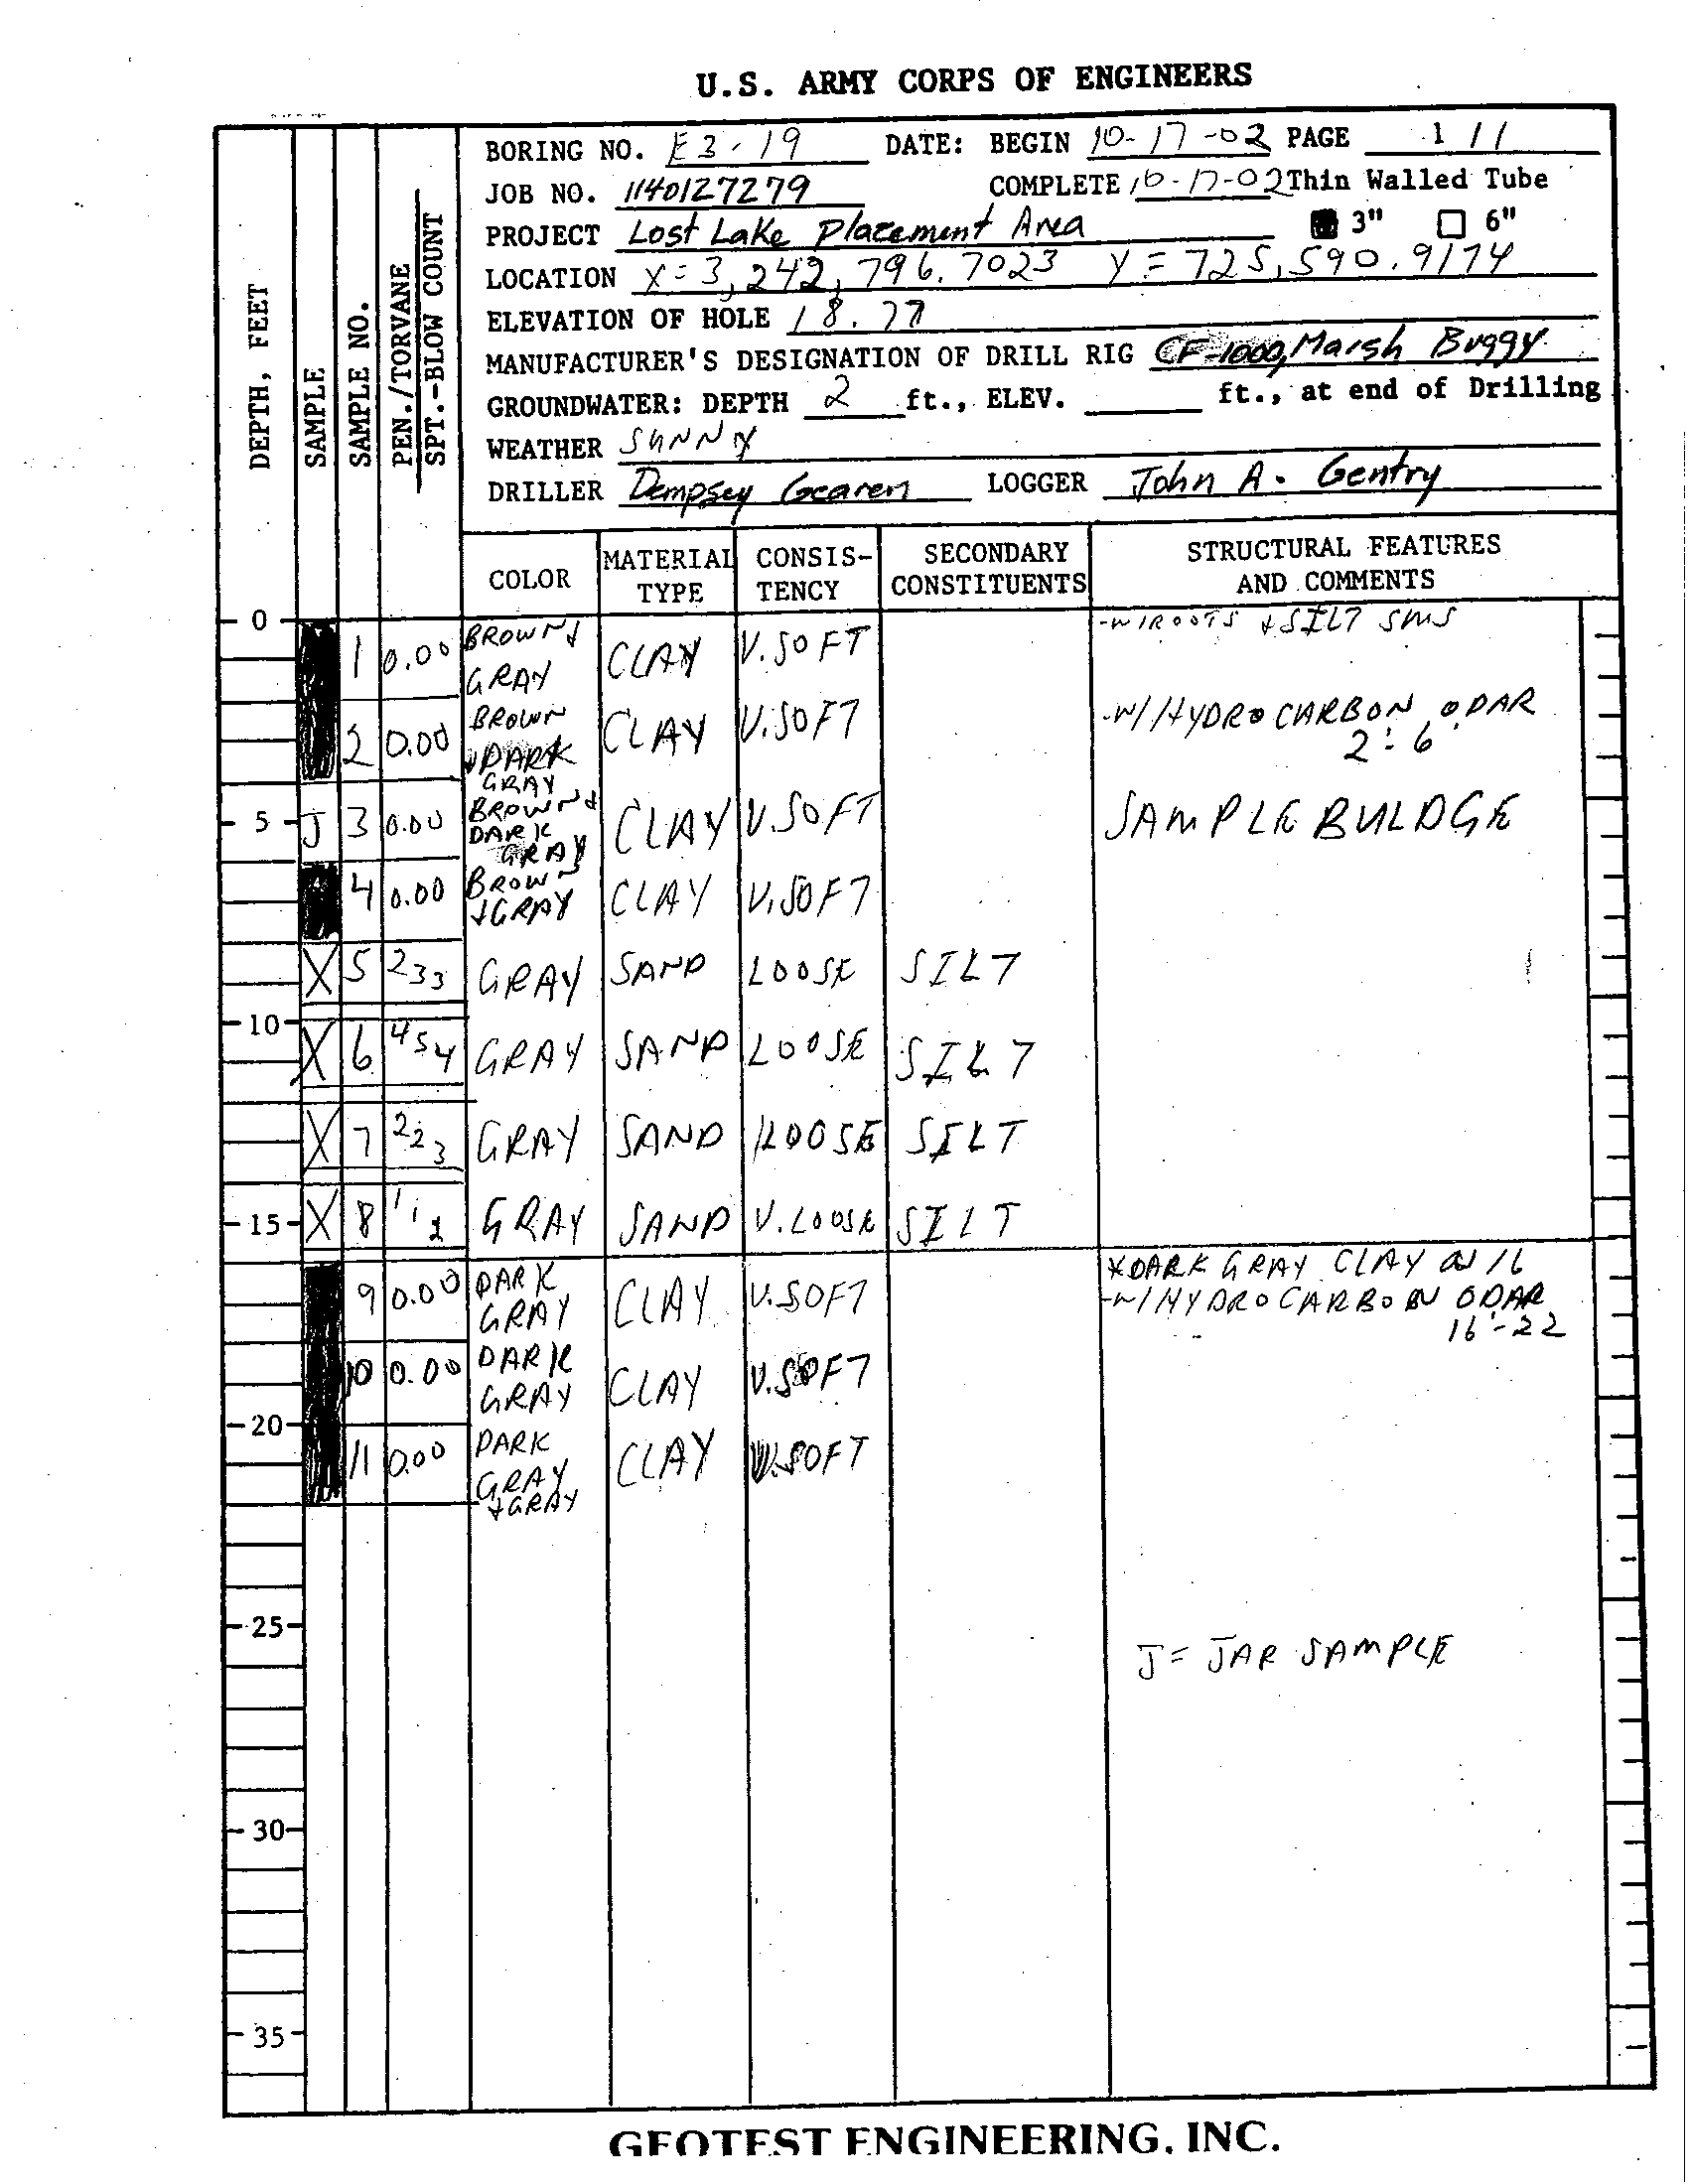 U.S. ARMY CORPS OF ENGINEERS
BORING NO. E3-19 DATE: BEGIN 10-17-02 PAGE 1 / 1
JOB NO. 1140127279 COMPLETE 10-17-02 Thin Walled Tube
PROJECT Lost Lake Placement Area 3" 6"
LOCATION X=3,242,796.7023 Y=725,590.9174
ELEVATION OF HOLE 18.77
MANUFACTURER'S DESIGNATION OF DRILL RIG CF-1000, Marsh Buggy
GROUNDWATER: DEPTH 2 ft., ELEV. ft., at end of Drilling
WEATHER SUNNY
DRILLER Dempsey Gearen LOGGER John A. Gentry
DEPTH, FEET
SAMPLE
SAMPLE NO.
PEN./TORVANE
SPT.-BLOW COUNT
COLOR MATERIAL TYPE CONSIS-TENCY SECONDARY CONSTITUENTS STRUCTURAL FEATURES AND COMMENTS
0 -W/ROOTS & SILT SMS
1 0.00 BROWN & GRAY CLAY V.SOFT
2 0.00 BROWN & DARK GRAY CLAY V.SOFT -W/HYDROCARBON ODAR 2'-6'
5 J 3 0.00 BROWN & DARK GRAY CLAY V.SOFT SAMPLE BULDGE
4 0.00 BROWN & GRAY CLAY V.SOFT
X 5 2 3 3 GRAY SAND LOOSE SILT
10 X 6 4 5 4 GRAY SAND LOOSE SILT
X 7 2 2 3 GRAY SAND LOOSE SILT
15 X 8 1 1 2 GRAY SAND V.LOOSE SILT
*DARK GRAY CLAY @ 16
9 0.00 DARK GRAY CLAY V.SOFT -W/HYDROCARBON ODAR 16'-22
10 0.00 DARK GRAY CLAY V.SOFT
20
11 0.00 DARK GRAY & GRAY CLAY V.SOFT
25
J = JAR SAMPLE
30
35
GEOTEST ENGINEERING, INC.